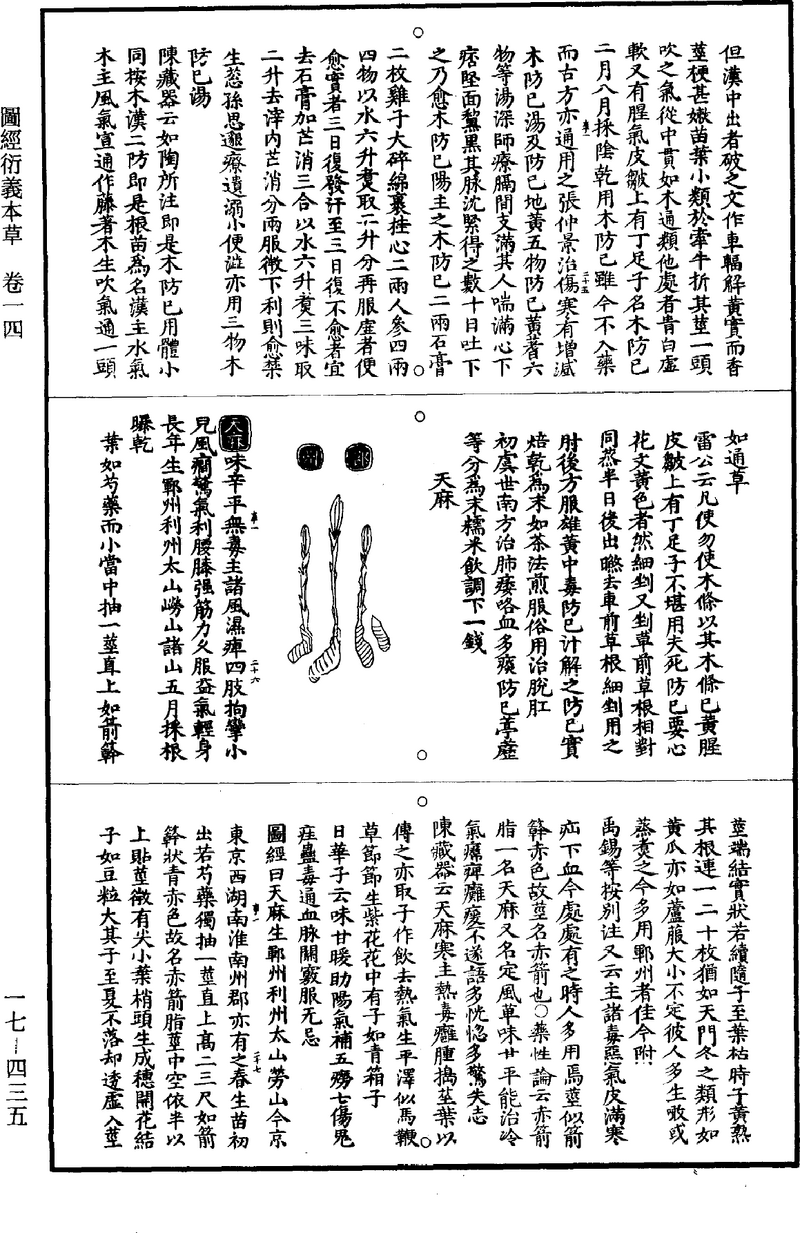 但漢中出者破之文作車輻解黃實而香
莖梗甚嫩苗葉小類於牽牛折其莖一頭
吹之氣從中貫如木通類他處者青白虛
軟又有腥氣皮皺上有丁足子名木防已
二月八月採陰乾用木防已雖今不入藥
而古方亦通用之張仲景治傷寒有增減
木防已湯及防已地黃五物防已黃蓍六
物等湯深師療膈間支滿其人喘滿心下
痞堅面黧黑其脉沈緊得之數十日吐下
之乃愈木防已湯主之木防已二兩石膏
二枚雞子大碎綿裹桂心二兩人參四兩
四物以水六升煑取二升分再服虛者便
愈實者三日復發汗至三日復不愈者宜
去石膏加芒消三合以水六升煑三味取
二升去滓內芒消分兩服微下利則愈禁
生葱孫思邈療遺溺小便澁亦用三物木
防已湯
陳藏器云如陶所注即是木防已用體小
同按木漢二防即是根苗爲名漢主水氣
木主風氣宣通作藤著木生吹氣通一頭
如通草
雷公云凡使勿使木條以其木條已黃腥
皮皺上有丁足子不堪用夫死防已要心
花文黃色者然細剉又剉草前草根相對
同蒸半日後出㬠去車前草根細剉用之
肘後方服雄黃中毒防已汁解之防已實
焙乾爲末如茶法煎服俗用治脫肛
初虞世南方治肺痿咯血多痰防已葶藶
等分爲末糯米飲調下一錢
天麻
天麻味辛平無毒主諸風濕痺四肢拘攣小
兒風癇驚氣利腰膝强筋力久服益氣輕身
長年生鄆州利州太山嶗山諸山五月採根
曝乾
葉如芍藥而小當中抽一莖直上如箭簳
莖端結實狀若續隨子至葉枯時子黃熟
其根連一二十枚猶如天門冬之類形如
黃瓜亦如蘆菔大小不定彼人多生噉或
蒸煑之今多用鄆州者佳今附
禹錫等按别注又云主諸毒惡氣皮滿寒
疝下血今處處有之時人多用焉莖似箭
簳赤色故莖名赤箭也○藥性論云赤箭
脂一名天麻又名定風草味甘平能治冷
氣㿏痺癱瘓不遂語多恍惚多驚失志
陳藏器云天麻寒主熱毒癰腫搗莖葉以
傅之亦取子作飲去熱氣生平澤似馬鞭
草節節生紫花花中有子如青葙子
日華子云味甘暖助陽氣補五勞七傷鬼
疰蠱毒通血脉開竅服无忌
圖經曰天麻生鄆州利州太山勞山今京
東京西湖南淮南州郡亦有之春生苗初
出若芍藥獨抽一莖直上高二三尺如箭
簳狀青赤色故名赤箭脂莖中空依半以
上貼莖微有尖小葉梢頭生成穗開花結
子如豆粒大其子至夏不落却透虛入莖
圖經衍義本草 卷一四
一七—四三五